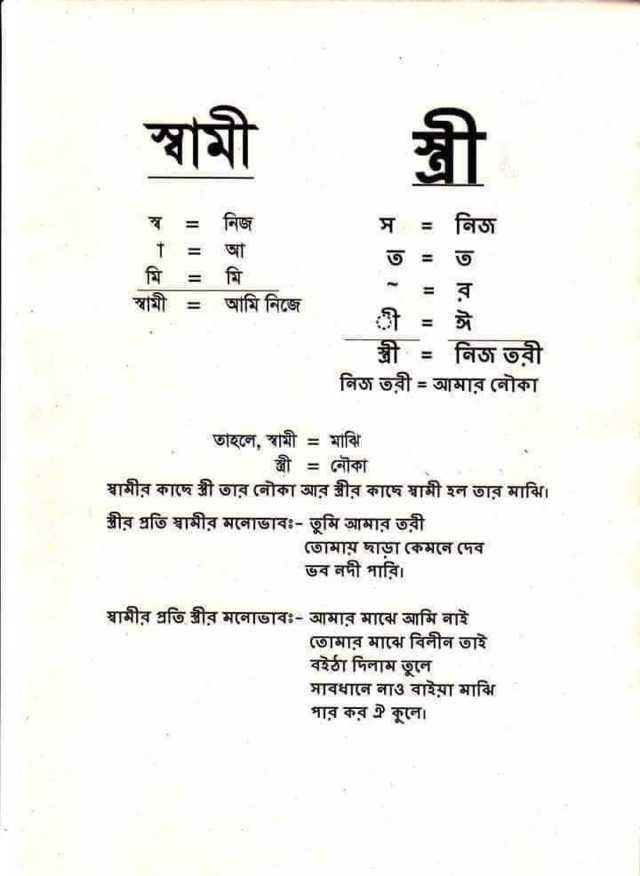 স্বামী
স্ব = নিজ
া = আ
মি = মি
স্বামী = আমি নিজে
স্ত্রী
স = নিজ
ত = ত
~ = র
ী = ঈ
স্ত্রী = নিজ তরী
নিজ তরী = আমার নৌকা
তাহলে, স্বামী = মাঝি
স্ত্রী = নৌকা
স্বামীর কাছে স্ত্রী তার নৌকা আর স্ত্রীর কাছে স্বামী হল তার মাঝি।
স্ত্রীর প্রতি স্বামীর মনোভাবঃ- তুমি আমার তরী
তোমায় ছাড়া কেমনে দেব
ভব নদী পারি।
স্বামীর প্রতি স্ত্রীর মনোভাবঃ- আমার মাঝে আমি নাই
তোমার মাঝে বিলীন তাই
বইঠা দিলাম তুলে
সাবধানে নাও বাইয়া মাঝি
পার কর ঐ কূলে।